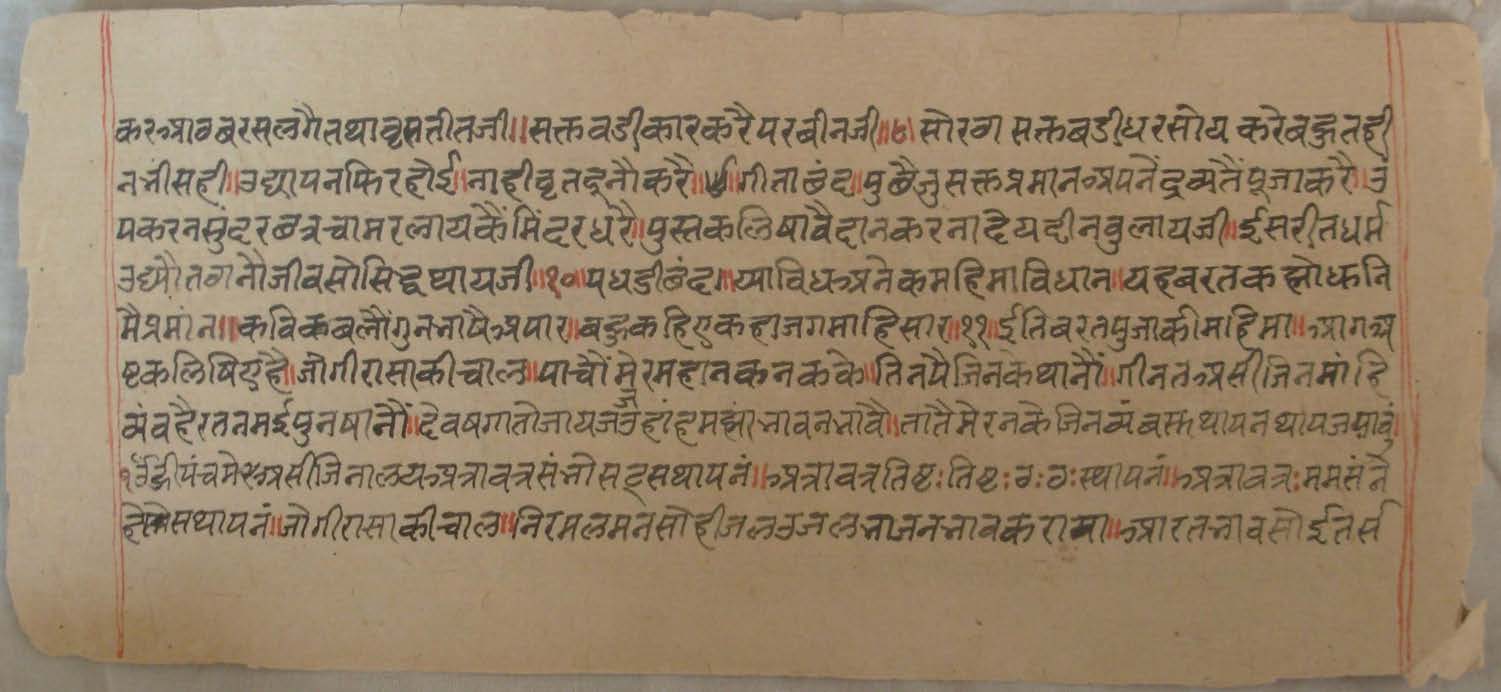 करआठबरसलगैतथावृसतीतजी॥सक्तवडीकारकरैपरबीनजी॥८॥सोरठा सक्तबडीधरसोय करेबहुतही
नभीसही॥उद्यापनफिरहोई॥नाहीवृतदूनौकरै॥९॥गीताछंद॥पुछैजुसक्तप्रमानअपनैंद्रव्यतैंपूजाकरै॥उ
पकरनसुंदरछत्रचामरलायकैंमिंदरधरै॥पुस्तकलिषावैदानकरनादेयदीनबुलायजी॥ईसरीतधर्म
उद्यौतठानौजीवसोसिद्धथायजी॥१०॥पधडीछंद॥याविधअनेकमहिमाविधान॥यहबरतकह्मोफनि
मैप्रमांन॥कविकबलौंगुनभाषैअपार॥बहुकहिएकहाजगमाहिसार॥११॥ईतिबरतपुजाकीमहिमा॥आगअ
ष्टकलिषिएहै॥जोगीरासाकीचाल॥पाचौंमेरमहानकनकके॥तिनपैजिनकेथानौं॥गीनतअसीजिनमांहि
व्यंवहैरतनमईपुनषानौं॥देवषगातोजायजजैउहांहमह्मांभावनभावै॥तातैमेरनकेजिनव्यंबस्मथापनथापजषावुं
१ॐह्रीपंचमेरुअसीजिनालयअत्रावत्रसंभोसट्सथापनं॥अत्रावत्रतिष्ट:तिष्ट:ठ:ठ:स्थापनं॥अत्रावत्र:ममसंने
हेसथापनं॥जोगीरासाकीचाल॥निरमलमनसोहीजलउजलभाजनभावकरामा॥आरतभावसोईतर्स